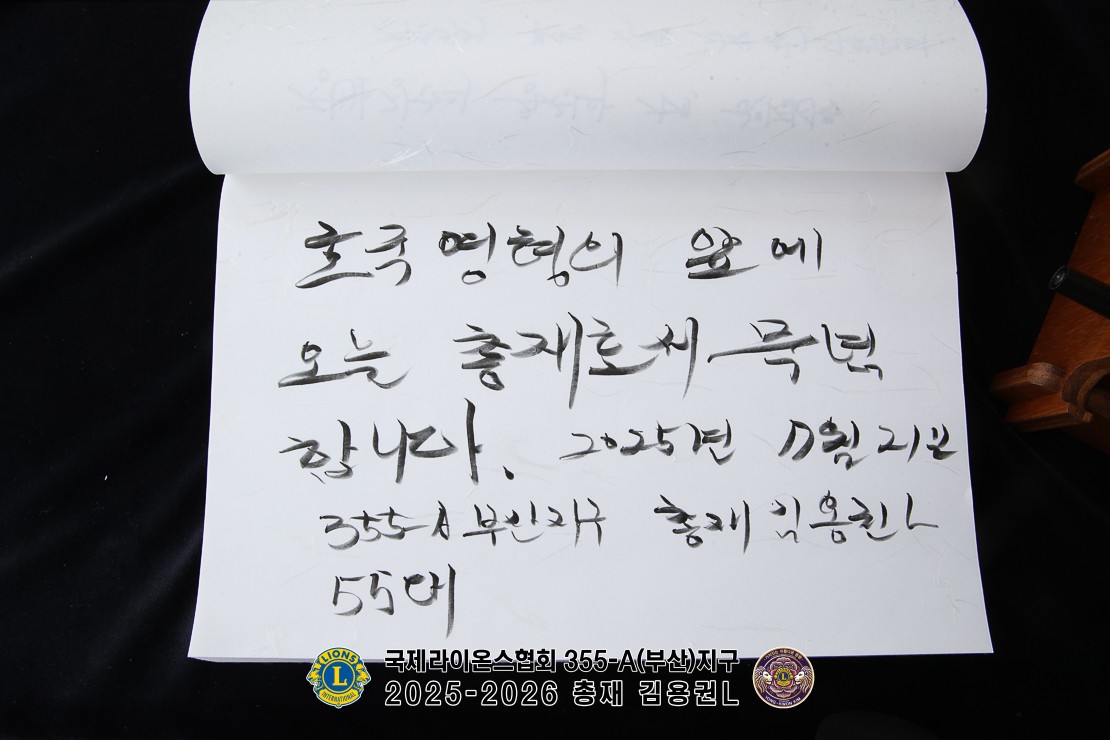 호국영형의 앞에
오늘 총재로써 묵념
합니다. 2025년 7월 21일
355-A 부산지구 총재 김용권 L
55대
국제라이온스협회 355-A(부산)지구
2025-2026 총재 김용권L
LIONS
L
INTERNATIONAL